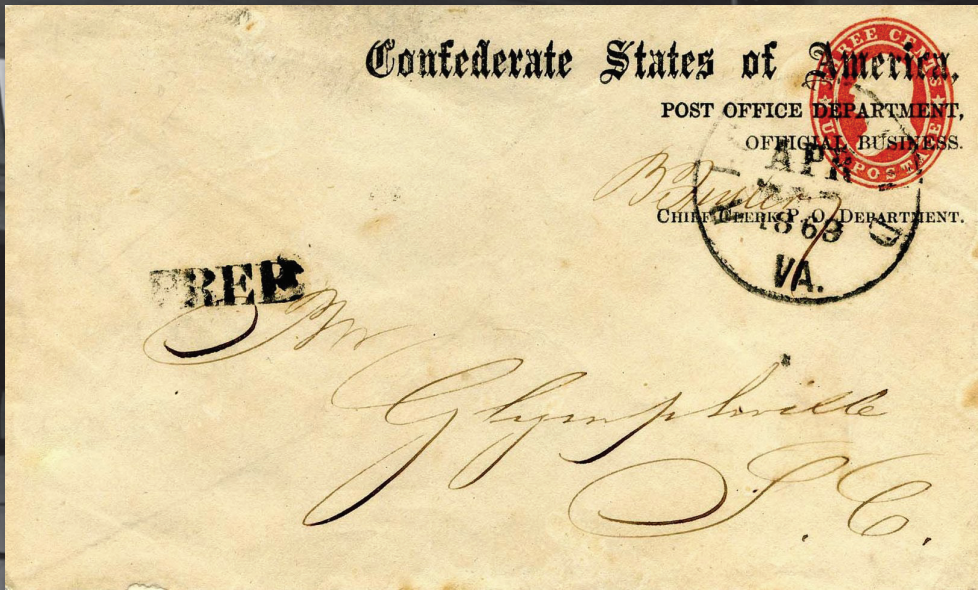 Confederate States of America,
POST OFFICE DEPARTMENT,
OFFICIAL BUSINESS.
CHIEF CLERK P. O. DEPARTMENT.
THREE CENTS
U.S. POSTAGE
APR
1863
VA.
FREE
Glymphville
S. C.